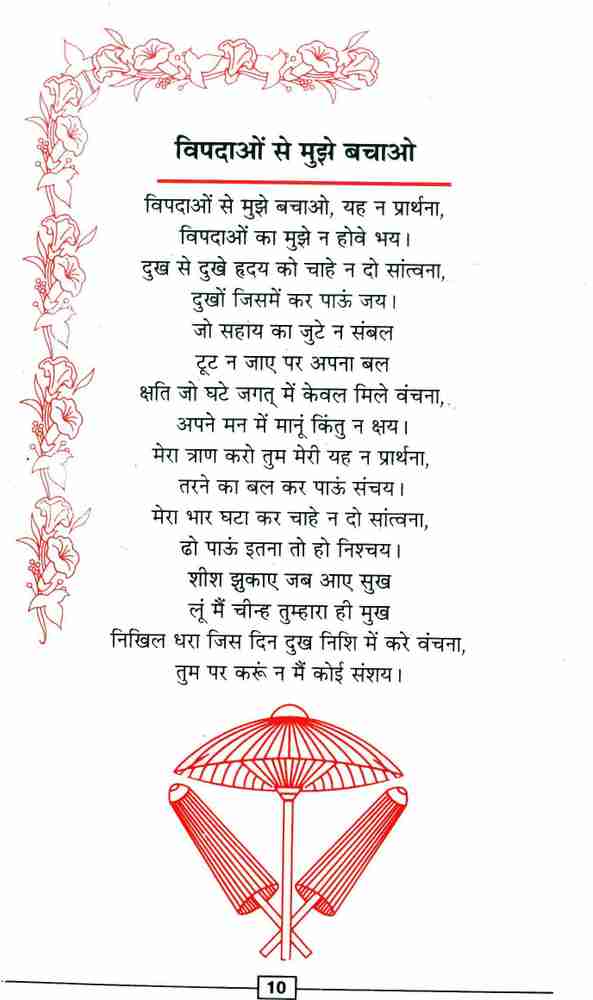 विपदाओं से मुझे बचाओ
विपदाओं से मुझे बचाओ, यह न प्रार्थना,
विपदाओं का मुझे न होवे भय।
दुख से दुखे हृदय को चाहे न दो सांत्वना,
दुखों जिसमें कर पाऊं जय।
जो सहाय का जुटे न संबल
टूट न जाए पर अपना बल
क्षति जो घटे जगत् में केवल मिले वंचना,
अपने मन में मानूं किंतु न क्षय।
मेरा त्राण करो तुम मेरी यह न प्रार्थना,
तरने का बल कर पाऊं संचय।
मेरा भार घटा कर चाहे न दो सांत्वना,
ढो पाऊं इतना तो हो निश्चय।
शीश झुकाए जब आए सुख
लूं मैं चीन्ह तुम्हारा ही मुख
निखिल धरा जिस दिन दुख निशि में करे वंचना,
तुम पर करूं न मैं कोई संशय।
10